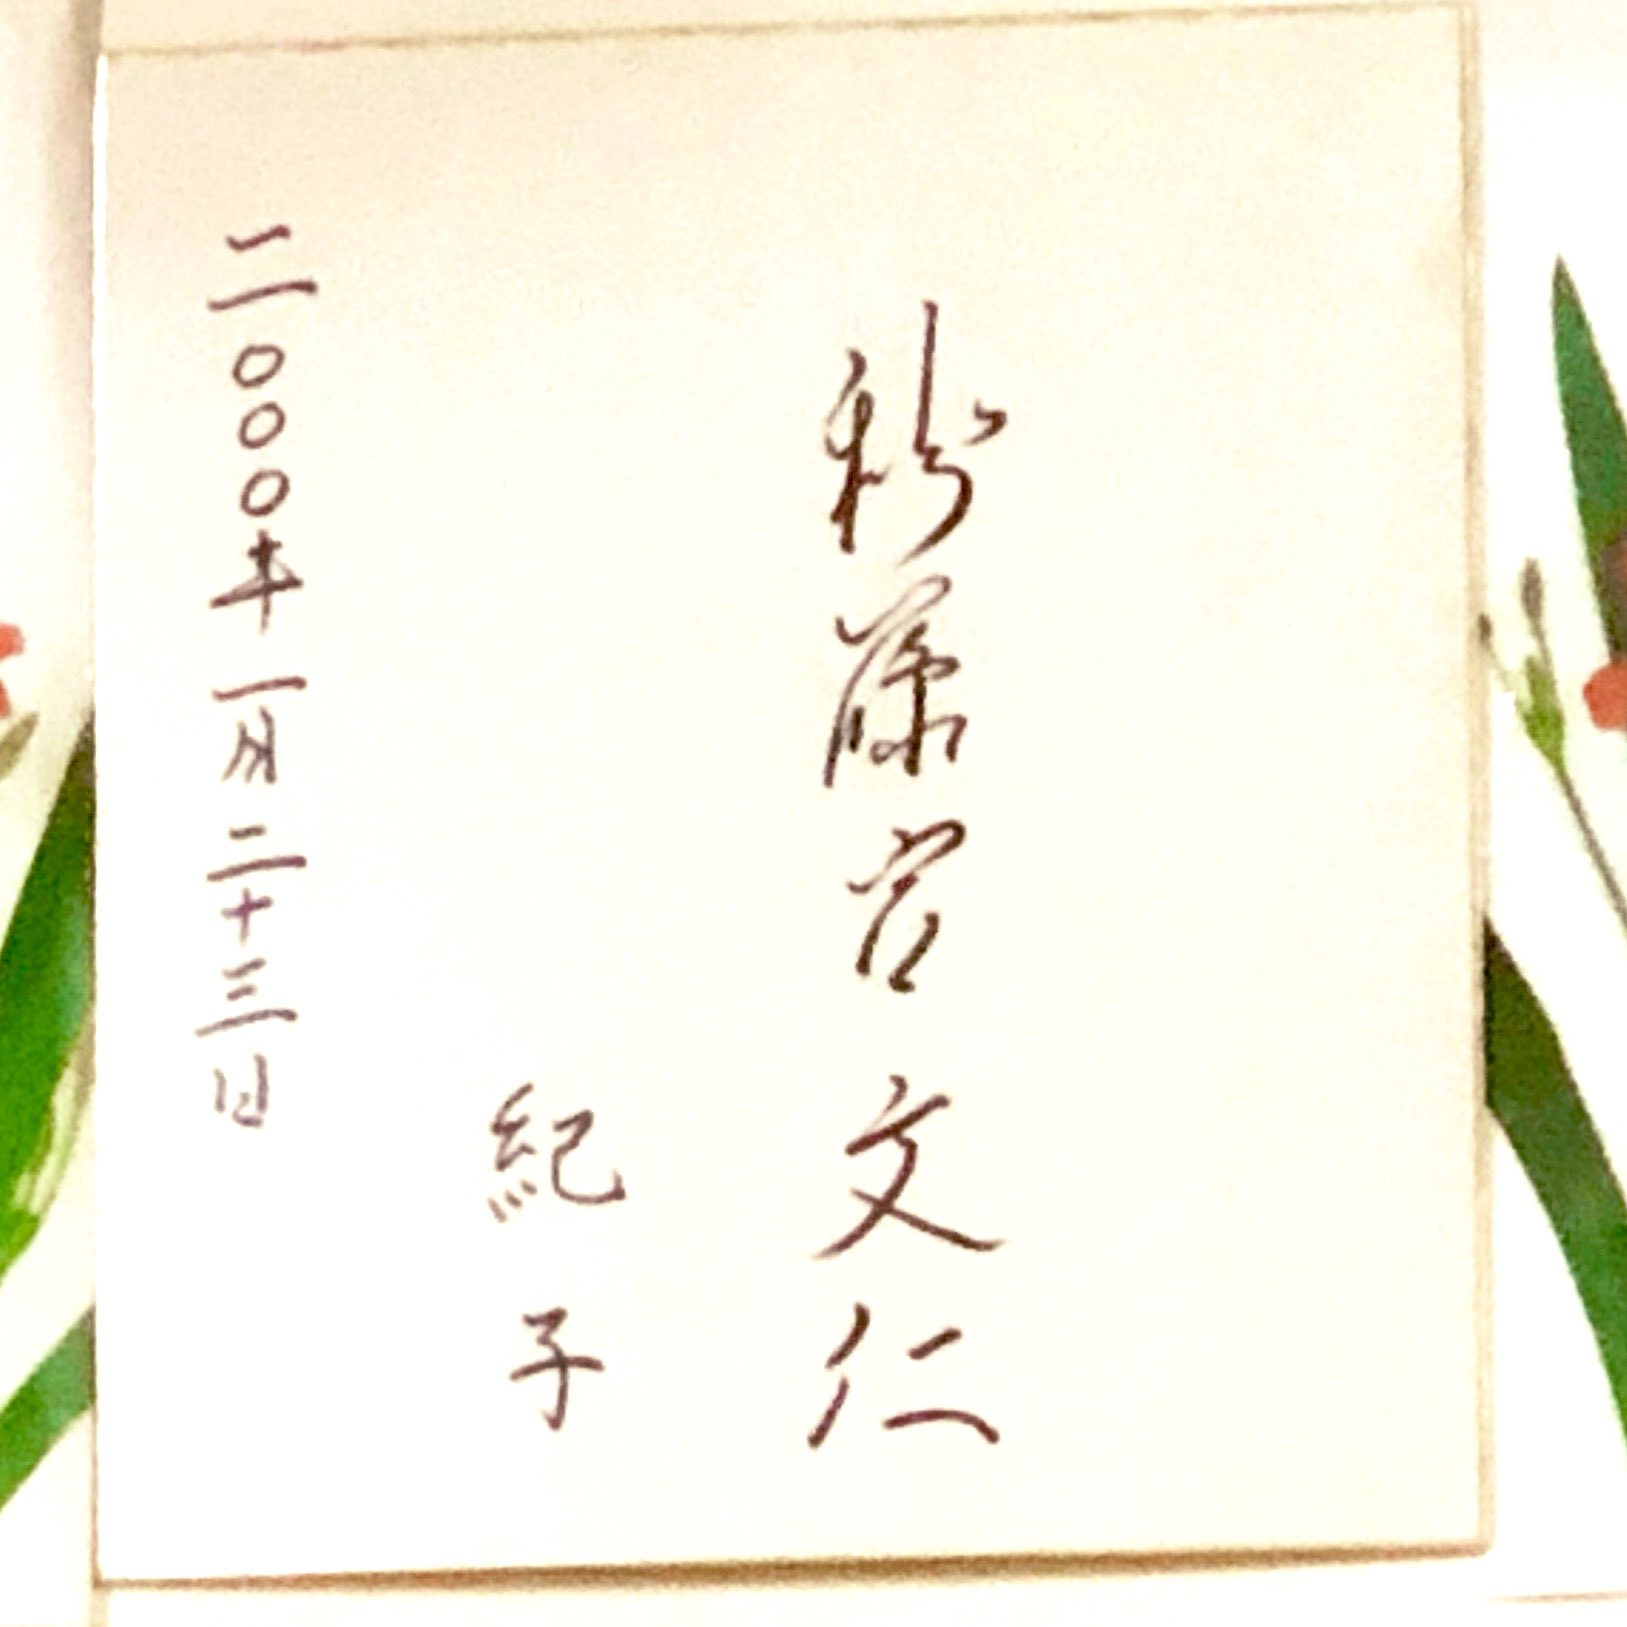 秋篠宮文仁
紀子
二〇〇〇年一月二十三日